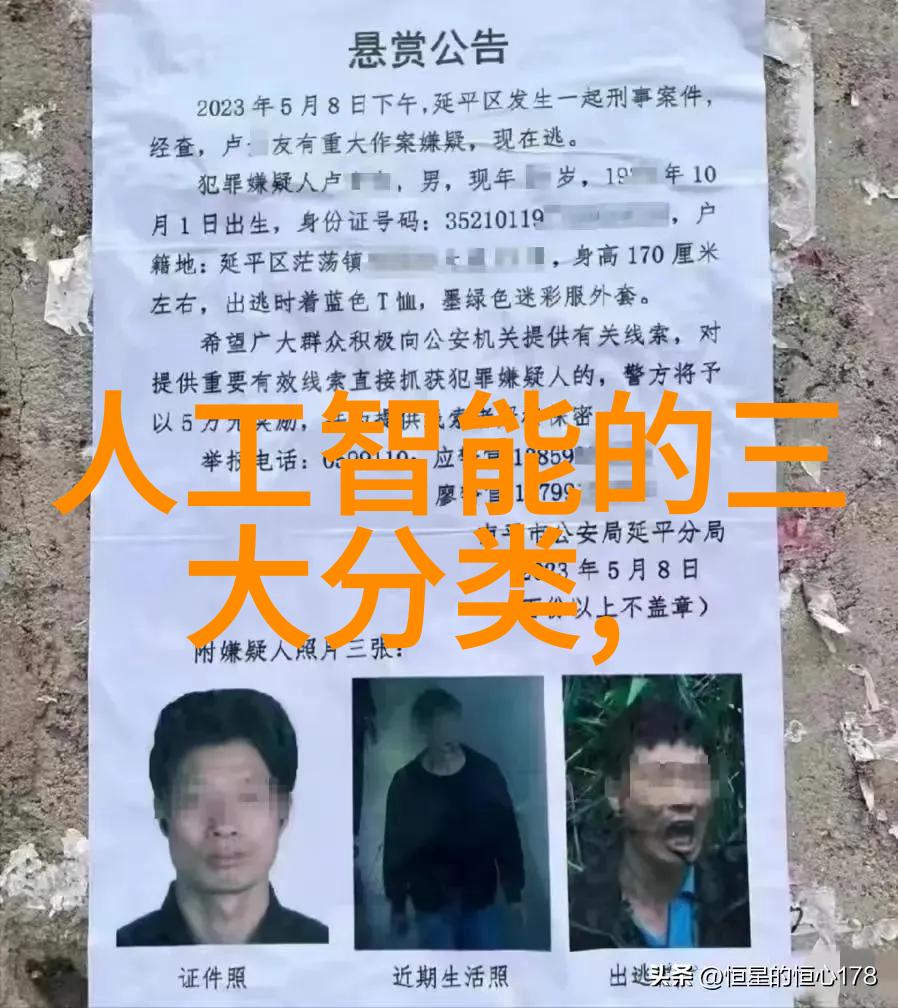 悬赏公告
2023年5月8日下午,延平区发生一起刑事案件,
经查,卢 友有重大作案嫌疑,现在逃。
犯罪嫌疑人卢 ,男,现年 岁,19 年10
月1日出生,身份证号码:35210119 ,户
籍地:延平区茫荡镇 ,身高170厘米
左右,出逃时着蓝色T恤,墨绿色迷彩服外套。
希望广大群众积极向公安机关提供有关线索,对
提供重要有效线索直接抓获犯罪嫌疑人的,警方将予
以5万元奖励, 提供线索 保密
人工智能的三
举报电话:0599110 应警官13859
廖警官 1 799
市公安局延平分局
大分类,
2023年5月8日
份以上不盖章)
附嫌疑人照片三张:
证件照
近期生活照
出逃
头条 @恒星的恒心178